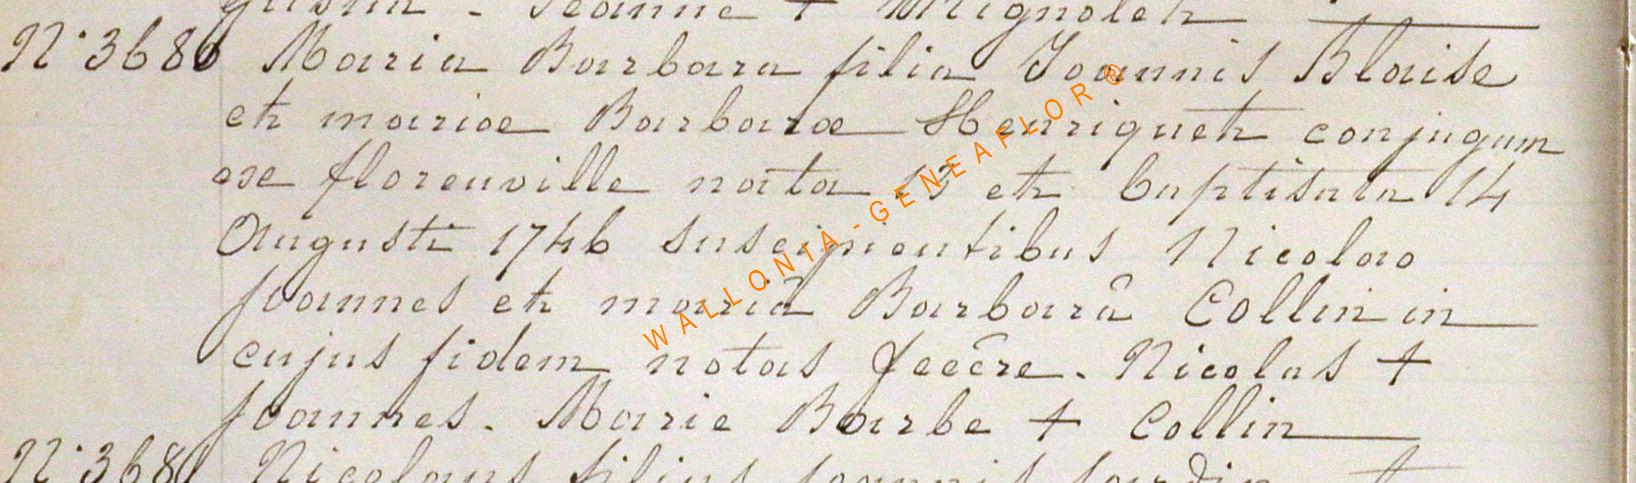 Jeanne + Mignolet
N° 3680 Maria Barbara filia Joannis Blaise
et mariae Barbarae Henriquet conjugum
ex florenville nata 13 et baptisata 14
Augusti 1746 suscipientibus Nicolao
joannes et mariâ Barbarâ Collin in
cujus fidem notas fecêre. Nicolas +
joannes. Marie Barbe + Collin
N° 3681 Nicolaus filius joannis
WALLONIA-GENEAFLOR®